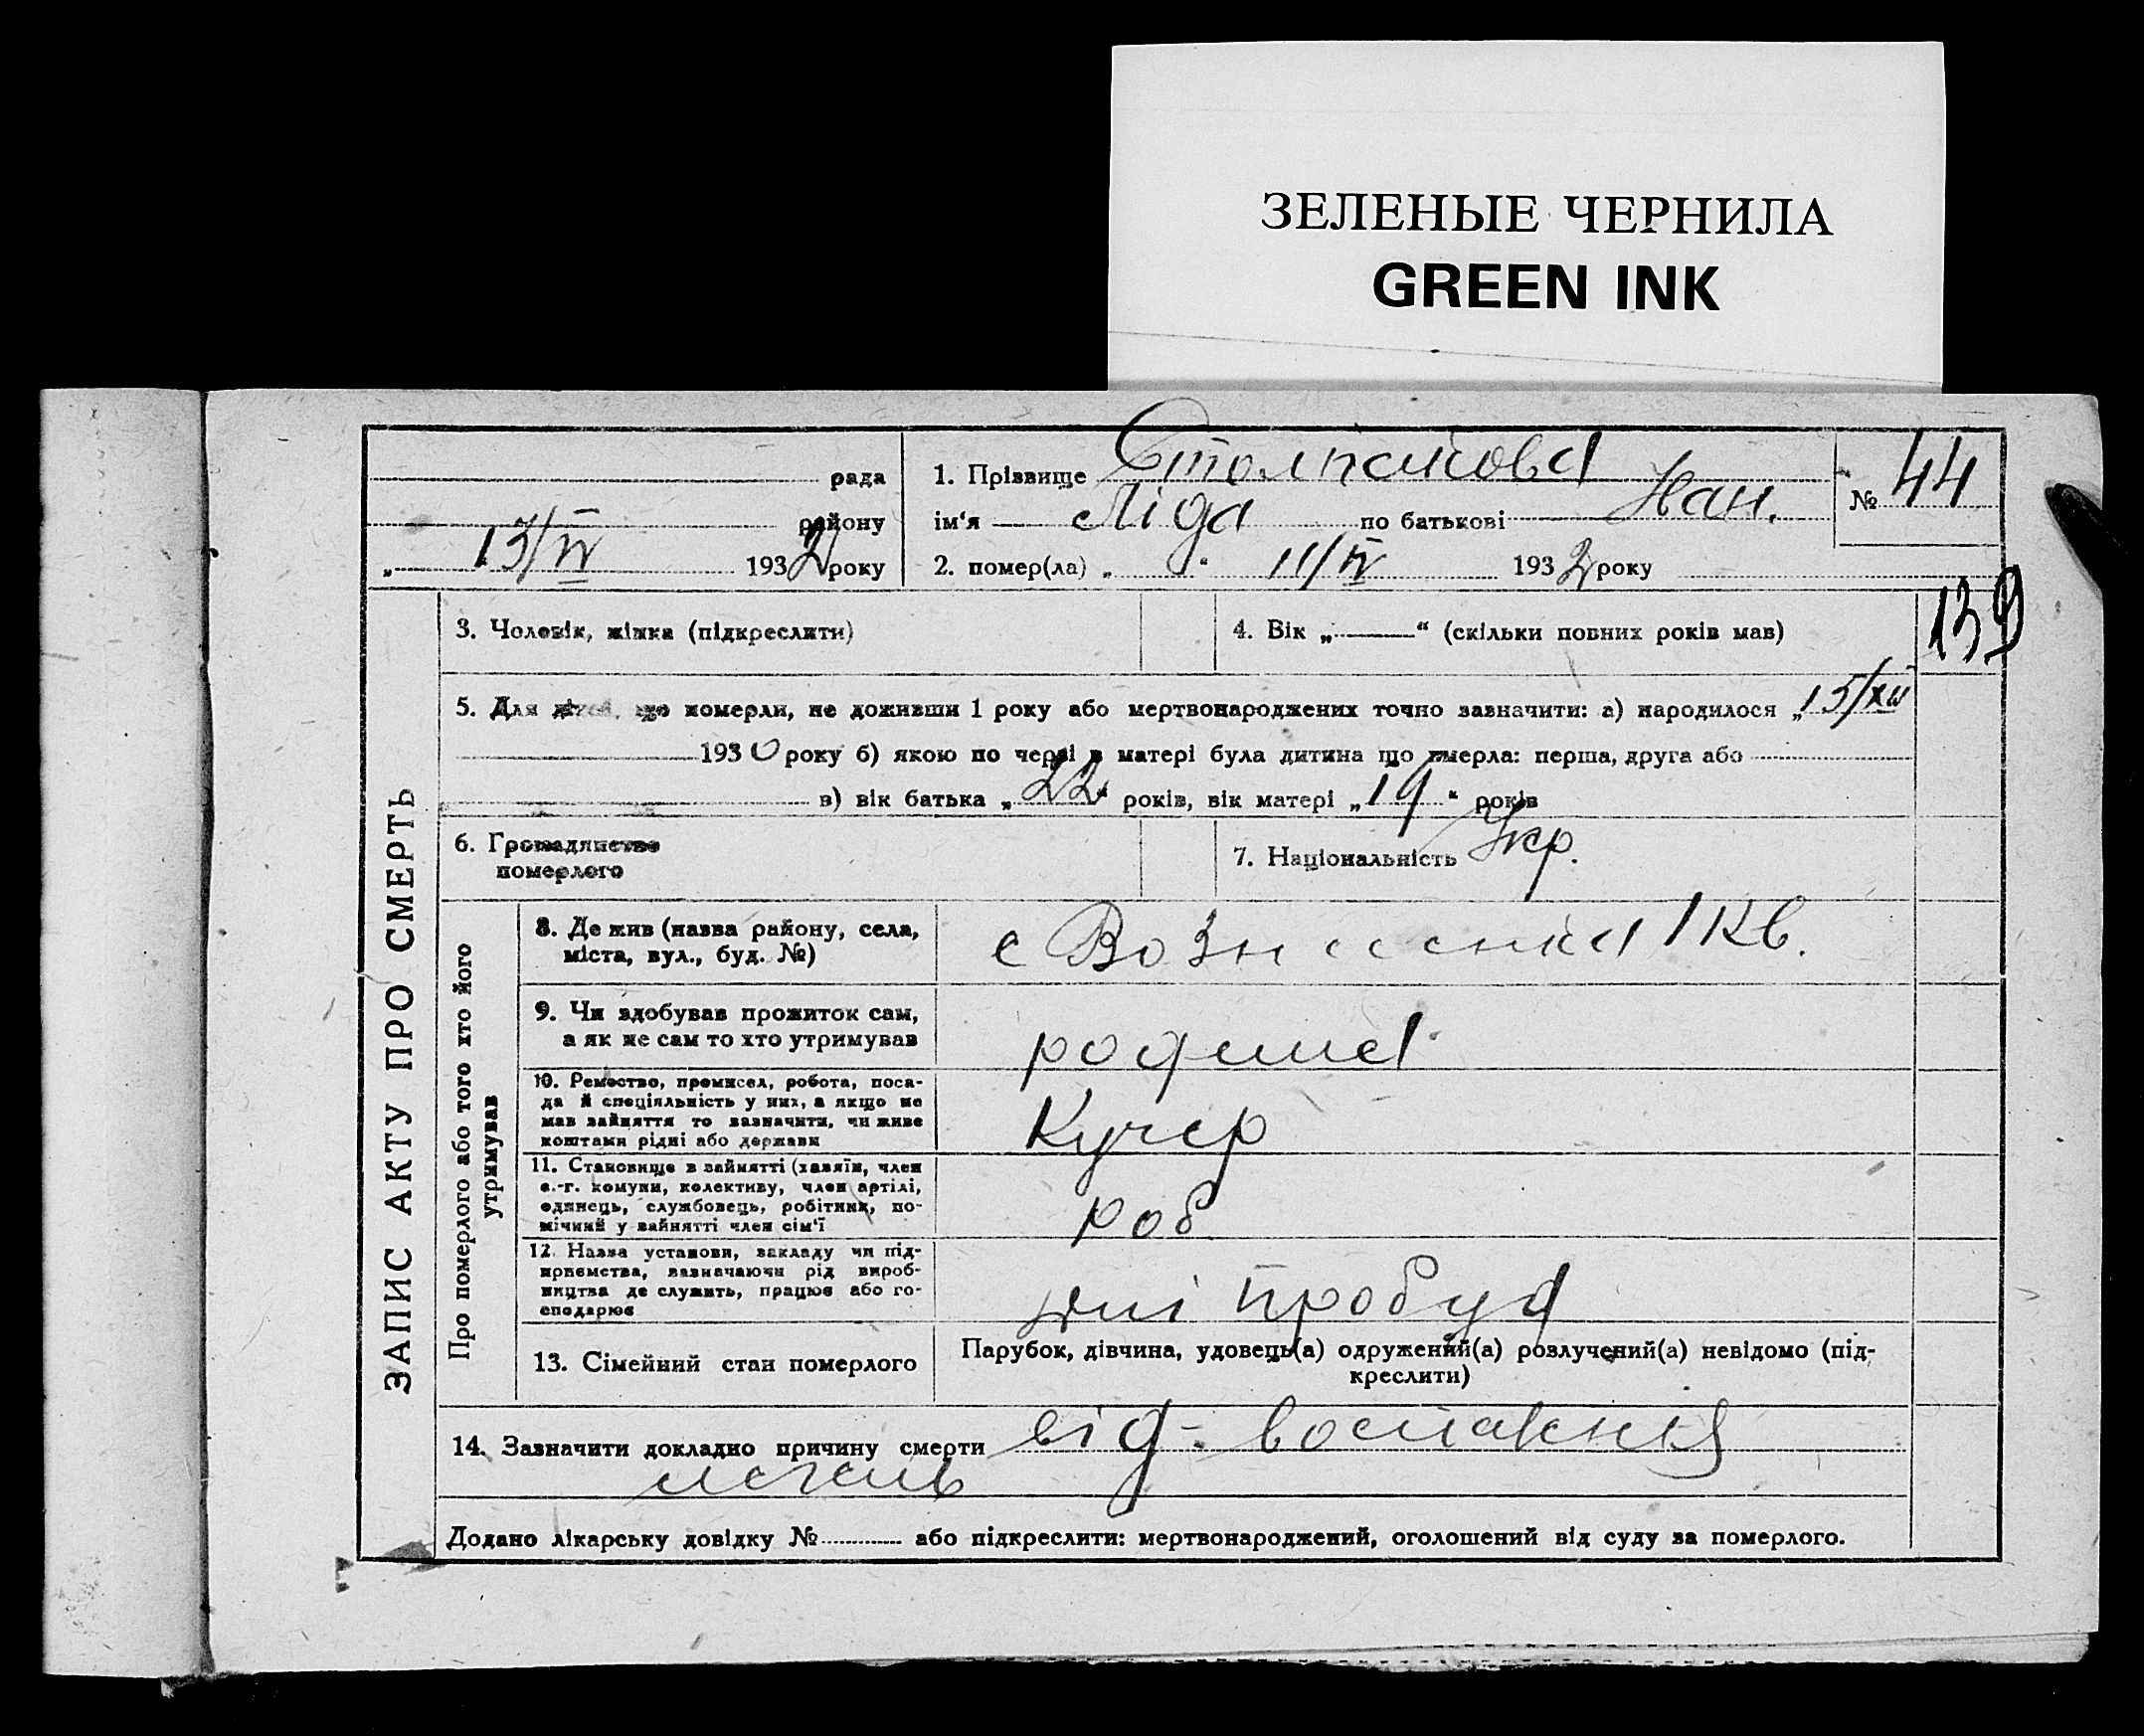 ЗЕЛЕНЫЕ ЧЕРНИЛА
GREEN INK
рада
району
„ 13/IV 1932 року
1. Прізвище
ім‘я Ліда по батькові
2. помер(ла) „ “ 11/IV 1932 року
№ 44
139
ЗАПИС АКТУ ПРО СМЕРТЬ
3. Чоловік, жінка (підкреслити)
4. Вік „ “ (скільки повних років мав)
5. Для дітей, що померли, не доживши 1 року або мертвонароджених точно зазначити: а) народилося „ 15/XII
1930 року б) якою по черзі в матері була дитина що вмерла: перша, друга або
в) вік батька „ 22 “ років, вік матері „ 19 “ років
6. Громадянство
померлого
7. Національність Укр.
Про померлого або того хто його
утримував
8. Де жив (назва району, села,
міста, вул., буд. №)
с Вознесенка 1 кв.
9. Чи здобував прожиток сам,
а як не сам то хто утримував
родина
10. Ремество, промисел, робота, поса-
да й спеціяльність у них, а якщо не
мав зайняття то зазначити, чи живе
коштами рідні або держави
Кучер
11. Становище в зайнятті (хазяїн, член
с.-г. комуни, колективу, член артілі,
одинець, службовець, робітник, по-
мічний у зайнятті член сім‘ї
роб
12. Назва установи, закладу чи під-
приємства, зазначаючи рід вироб-
ництва де служить, працює або го-
сподарює
13. Сімейний стан померлого
Парубок, дівчина, удовець(а) одружений(а) розлучений(а) невідомо (під-
креслити)
14. Зазначити докладно причину смерти від воспаления
Додано лікарську довідку № або підкреслити: мертвонароджений, оголошений від суду за померлого.